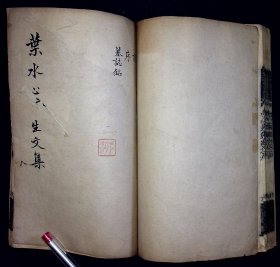 序
墓誌銘
葉水心先生文集
八